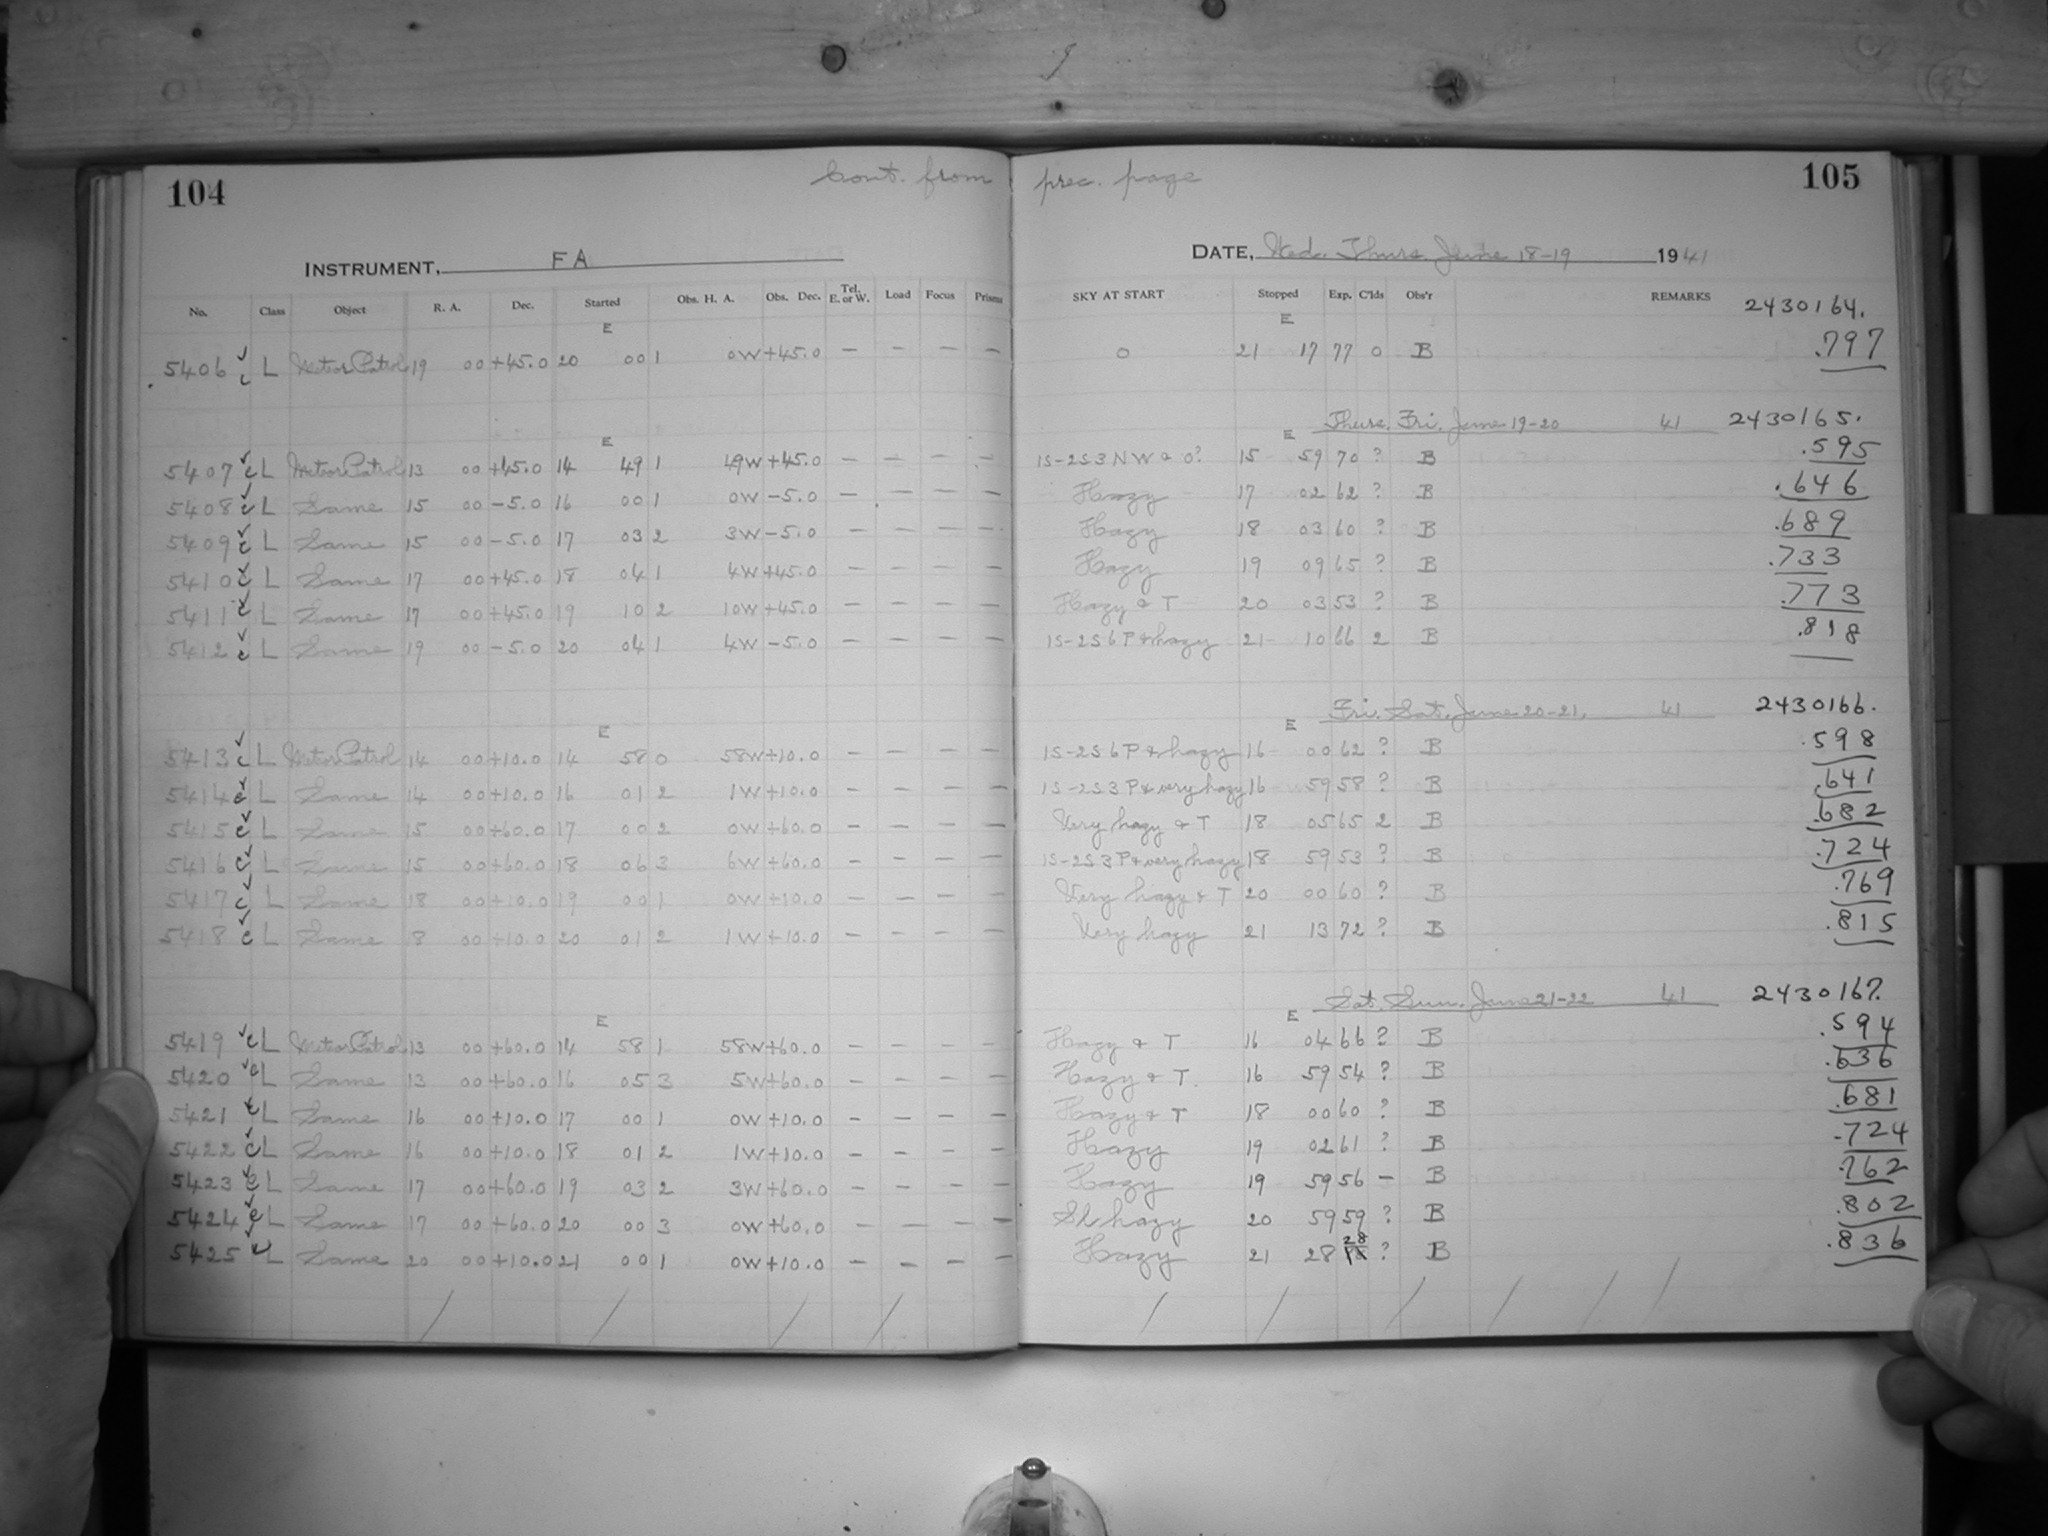 104 Cont. from prec. page 105
INSTRUMENT, FA DATE, Wed. Thurs. June 18-19 1941
No. Class Object R. A. Dec. Started Obs. H. A. Obs. Dec. Tel. E. or W. Load Focus Prisms SKY AT START Stopped Exp. C'lds Obs'r REMARKS 2430164.
E E
5406 ✓ c L Meteor Patrol 19 00 +45.0 20 00 1 0W +45.0 — — — — 0 21 17 77 0 B .797
Thurs. Fri. June 19-20 41 2430165.
E E
5407 ✓ c L Meteor Patrol 13 00 +45.0 14 49 1 49W +45.0 — — — — 1S-2S3NW & 0? 15 59 70 ? B .595
5408 ✓ c L Same 15 00 -5.0 16 00 1 0W -5.0 — — — — Hazy 17 02 62 ? B .646
5409 ✓ c L Same 15 00 -5.0 17 03 2 3W -5.0 — — — — Hazy 18 03 60 ? B .689
5410 ✓ c L Same 17 00 +45.0 18 04 1 4W +45.0 — — — — Hazy 19 09 65 ? B .733
5411 ✓ c L Same 17 00 +45.0 19 10 2 10W +45.0 — — — — Hazy & T 20 03 53 ? B .773
5412 ✓ c L Same 19 00 -5.0 20 04 1 4W -5.0 — — — — 1S-2S6P & hazy 21 10 66 2 B .818
Fri. Sat. June 20-21. 41 2430166.
E E
5413 ✓ c L Meteor Patrol 14 00 +10.0 14 58 0 58W +10.0 — — — — 1S-2S6P & hazy 16 00 62 ? B .598
5414 ✓ c L Same 14 00 +10.0 16 01 2 1W +10.0 — — — — 1S-2S3P & very hazy 16 59 58 ? B .641
5415 ✓ c L Same 15 00 +60.0 17 00 2 0W +60.0 — — — — Very hazy & T 18 05 65 2 B .682
5416 ✓ c L Same 15 00 +60.0 18 06 3 6W +60.0 — — — — 1S-2S3P & very hazy 18 59 53 ? B .724
5417 ✓ c L Same 18 00 +10.0 19 00 1 0W +10.0 — — — — Very hazy & T 20 00 60 ? B .769
5418 ✓ c L Same 18 00 +10.0 20 01 2 1W +10.0 — — — — Very hazy 21 13 72 ? B .815
Sat. Sun. June 21-22 41 2430167.
E E
5419 ✓ c L Meteor Patrol 13 00 +60.0 14 58 1 58W +60.0 — — — — Hazy & T 16 04 66 ? B .594
5420 ✓ c L Same 13 00 +60.0 16 05 3 5W +60.0 — — — — Hazy & T. 16 59 54 ? B .636
5421 ✓ c L Same 16 00 +10.0 17 00 1 0W +10.0 — — — — Hazy & T 18 00 60 ? B .681
5422 ✓ c L Same 16 00 +10.0 18 01 2 1W +10.0 — — — — Hazy 19 02 61 ? B .724
5423 ✓ c L Same 17 00 +60.0 19 03 2 3W +60.0 — — — — Hazy 19 59 56 — B .762
5424 ✓ c L Same 17 00 +60.0 20 00 3 0W +60.0 — — — — Sl hazy 20 59 59 ? B .802
5425 ✓ c L Same 20 00 +10.0 21 00 1 0W +10.0 — — — — Hazy 21 28 28 ? B .836